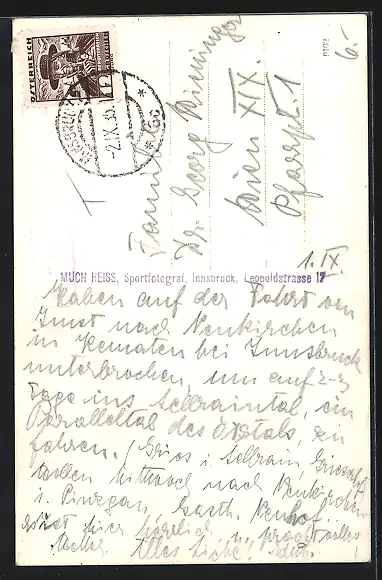 ÖSTERREICH
12
INNSBRUCK
-2.IX.35
* 6c *
Familie
Dr. Georg
Wien XIX.
Pfarrpl. 1
T
P102
6.-
1. IX
MUCH HEISS, Sportfotograf, Innsbruck, Leopoldstrasse 17
Haben auf der Fahrt von
Imst nach Neukirchen
in Kematen bei Innsbruck
unterbrochen, um auf 2-3
Tage ins Sellraintal, ein
Paralleltal des Ötztals, zu
fahren. (Gries i. Sellrain,
wollen Mittwoch nach Neukirchen
i. Pinzgau, Gasth.
hier herrlich u. prachtvolles
Wetter. Alles Liebe!